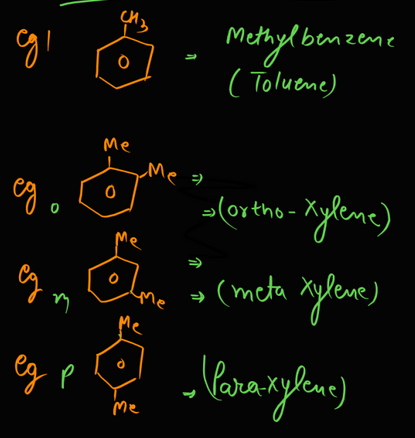 CH3
eg 1 ⇒ Methylbenzene
(Toluene)
Me
Me ⇒
eg o ⇒ (ortho-Xylene)
Me ⇒
eg m Me ⇒ (meta Xylene)
Me
eg p ⇒ (Para-xylene)
Me